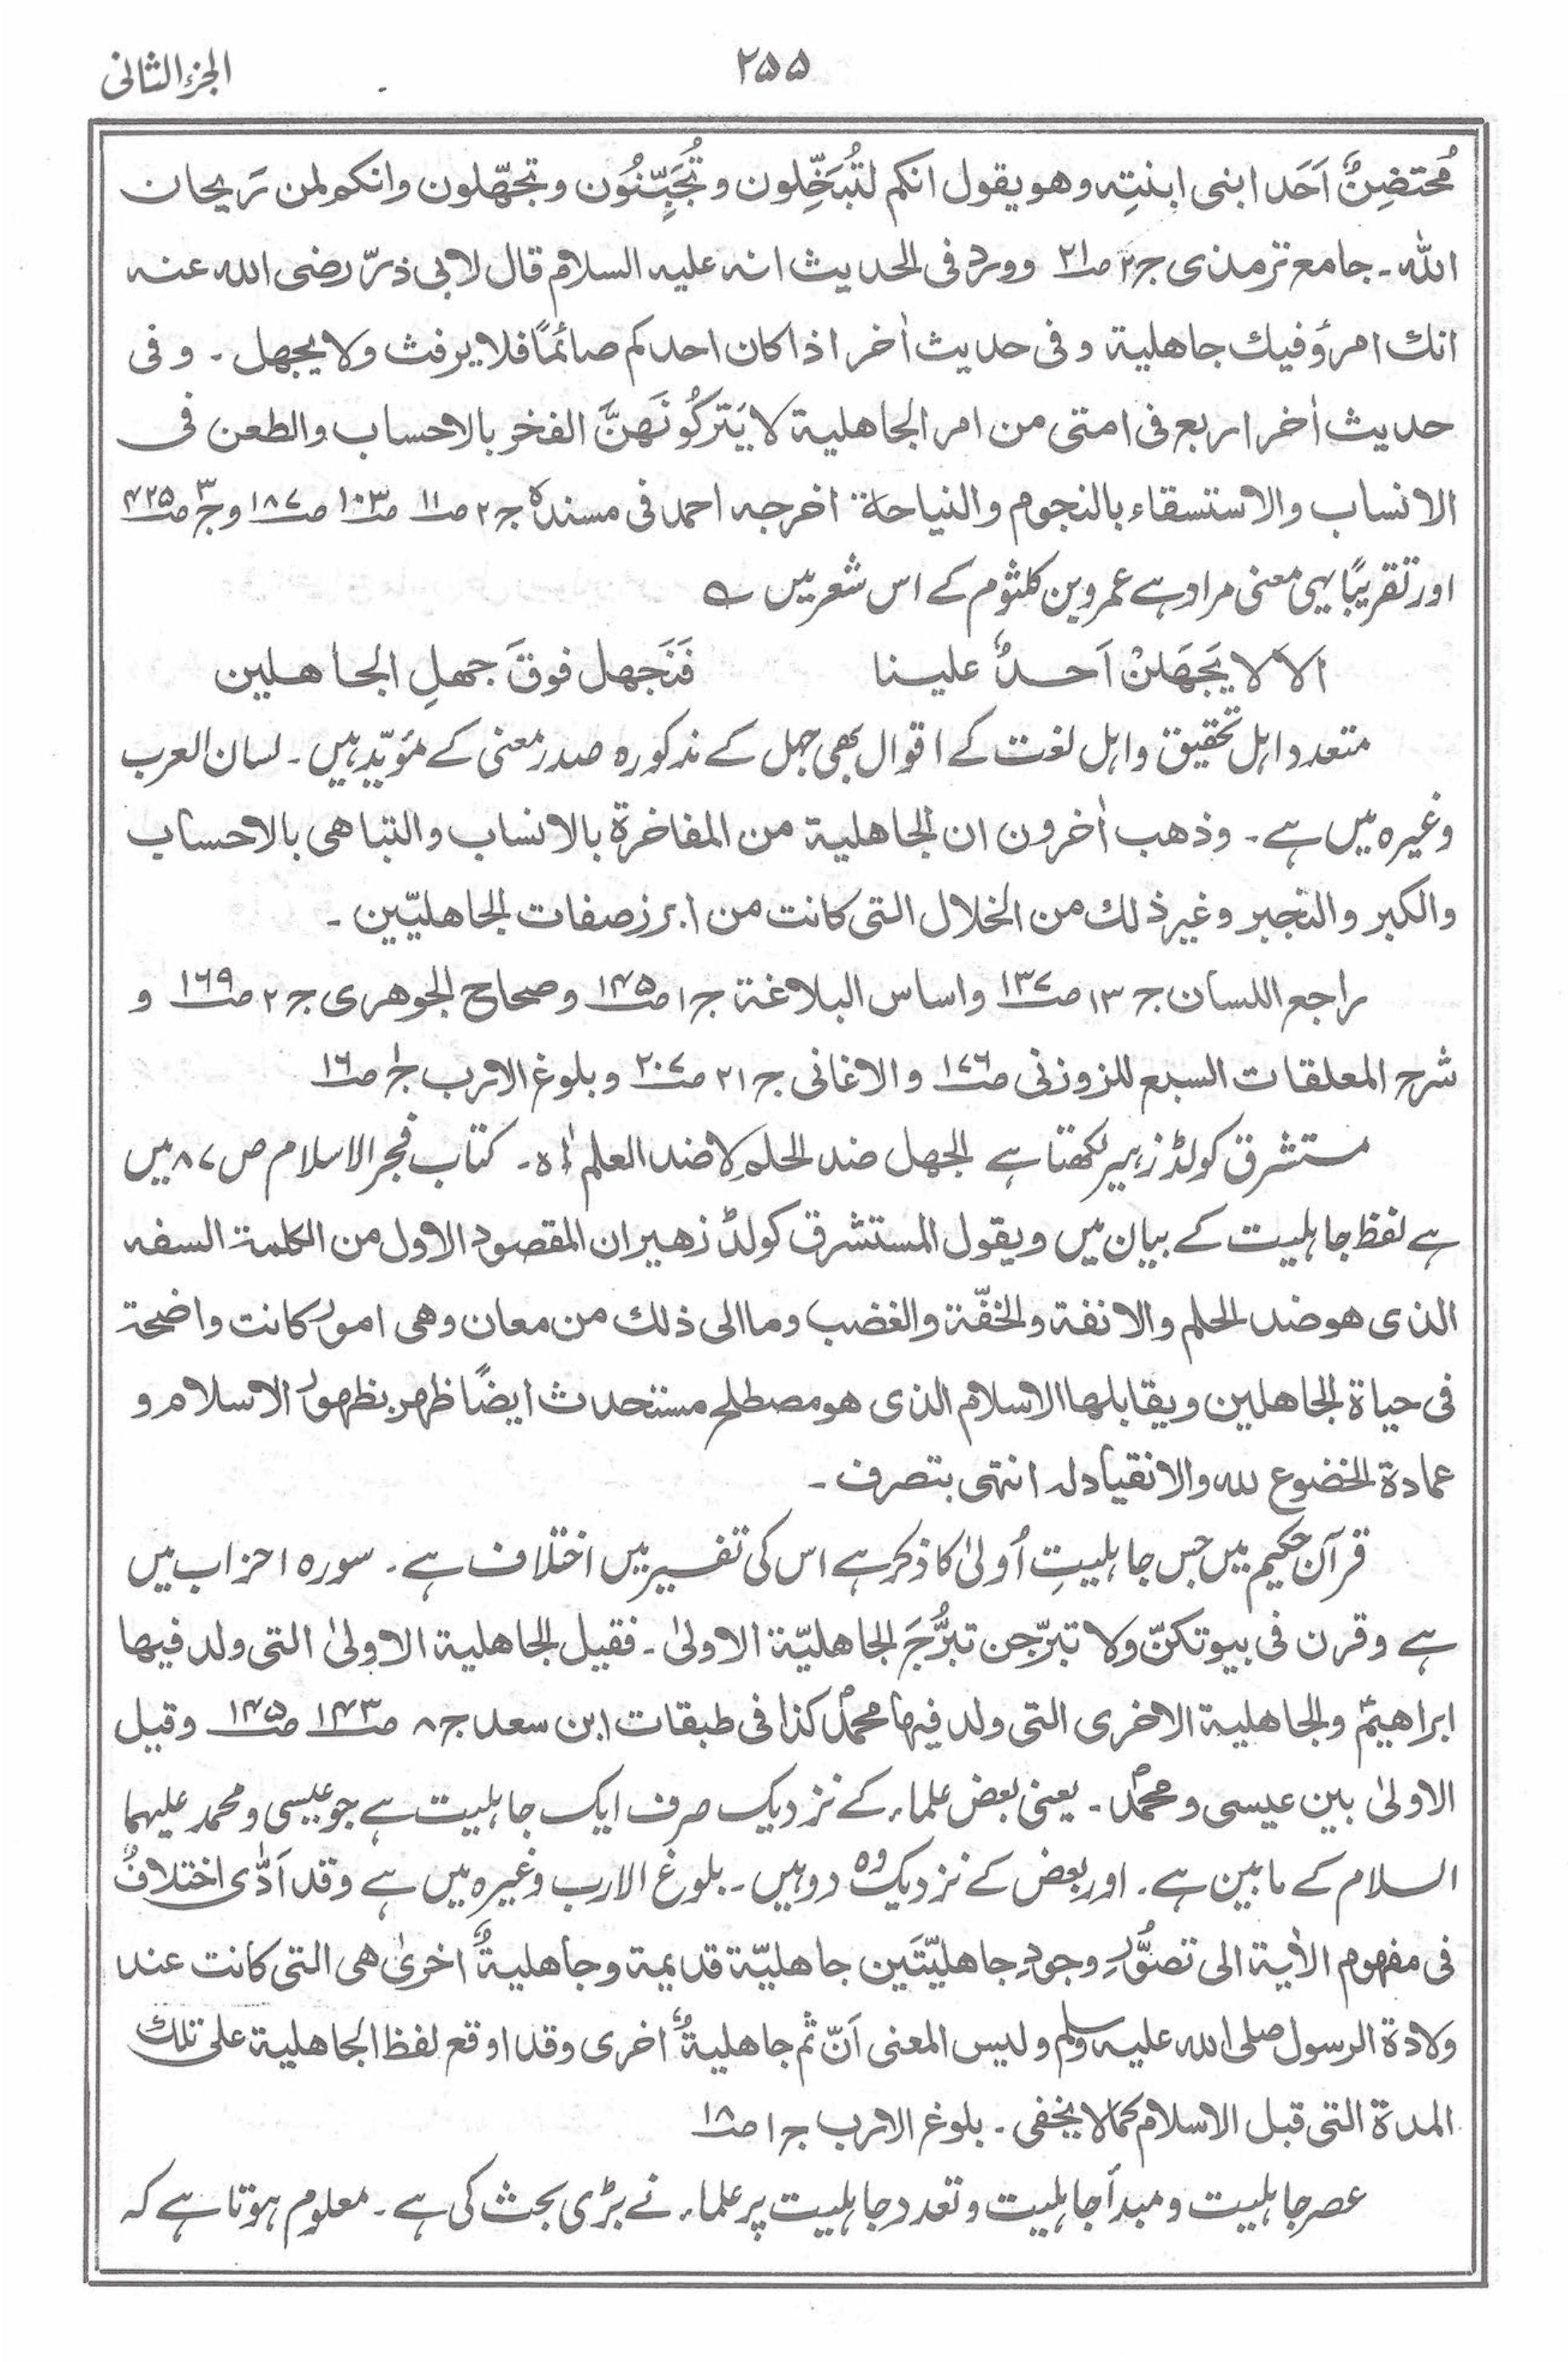 الجزء الثانی
۲۵۵
مُحتضِنٌ اَحَد ابنی ابنتِه وهو یقول انکم لتُبَخِّلون وتُجَبِّنُون وتجهّلون وانکم لمن رَیحان
اللّٰه ۔ جامع ترمذی ج۲ ص۲۱ وورد فی الحدیث انه علیه السلام قال لابی ذرّ رضی الله عنه
انك امرؤ فیك جاهلیة وفی حدیث اٰخر اذا کان احدکم صائمًا فلا یرفث ولا یجهل ۔ وفی
حدیث اٰخر اربع فی امتی من امر الجاهلیة لا یَترکُونَهنَّ الفخر بالاحساب والطعن فی
الانساب والاستسقاء بالنجوم والنیاحة اخرجه احمد فی مسنده ج۲ ص۱۱ ص۱۰۳ ص۱۸۷ وج۳ ص۴۲۵
اور تقریبًا یہی معنی مراد ہے عمرو بن کلثوم کے اس شعر میں ؎
الا لا یَجهَلنْ اَحدٌ علینا فَنَجهل فوقَ جهلِ الجاهلین
متعدد اہل تحقیق واہل لغت کے اقوال بھی جہل کے مذکورہ صدر معنی کے مؤیِّد ہیں ۔ لسان العرب
وغیرہ میں ہے ۔ وذهب اٰخرون ان الجاهلیة من المفاخرة بالانساب والتباهی بالاحساب
والکبر والتجبر وغیر ذلك من الخلال التی کانت من ابرز صفات الجاهلیّین ۔
راجع اللسان ج ۱۳ ص۱۳۷ واساس البلاغة ج۱ ص۱۴۵ وصحاح الجوهری ج۲ ص۱۶۹ و
شرح المعلقات السبع للزوزنی ص۱۷۶ والاغانی ج۲۱ ص۲۰۷ وبلوغ الارب ج۱ ص۱۶
مستشرق کولڈ زہیر لکھتا ہے الجهل ضد الحلم لا ضد العلم اه ۔ کتاب فجر الاسلام ص ۸۷ میں
ہے لفظ جاہلیت کے بیان میں ویقول المستشرق کولڈ زهیر ان المقصود الاول من الکلمة السفه
الذی هو ضد الحلم والانفة والخفّة والغضب وما الی ذلك من معان وهی امور کانت واضحة
فی حیاة الجاهلین ویقابلها الاسلام الذی هو مصطلح مستحدث ایضًا ظهر بظهور الاسلام و
عمادة الخضوع لله والانقیاد له انتهی بتصرف ۔
قرآن حکیم میں جس جاہلیتِ اُولیٰ کا ذکر ہے اس کی تفسیر میں اختلاف ہے ۔ سورہ احزاب میں
ہے وقرن فی بیوتکنّ ولا تبرّجن تبرُّجَ الجاهلیّة الاولیٰ ۔ فقیل الجاهلیة الاولیٰ التی ولد فیها
ابراهیمؑ والجاهلیة الاخری التی ولد فیها محمدؐ کذا فی طبقات ابن سعد ج۸ ص۱۴۳ ص۱۴۵ وقیل
الاولیٰ بین عیسی ومحمدؐ ۔ یعنی بعض علماء کے نزدیک صرف ایک جاہلیت ہے جو عیسی ومحمد علیہما
السلام کے مابین ہے ۔ اور بعض کے نزدیک وہ دو ہیں ۔ بلوغ الارب وغیرہ میں ہے وقد اَدّٰی اختلافٌ
فی مفهوم الاٰیة الی تصوُّرِ وجودِ جاهلیّتَین جاهلیّة قدیمة وجاهلیةٌ اخریٰ هی التی کانت عند
ولادة الرسول صلی الله علیه وسلم ولیس المعنی اَنّ ثم جاهلیةٌ اخری وقد اوقع لفظ الجاهلیة علی تلك
المدة التی قبل الاسلام کما لا یخفی ۔ بلوغ الارب ج۱ ص۱۸
عصر جاہلیت ومبدأ جاہلیت وتعدد جاہلیت پر علماء نے بڑی بحث کی ہے ۔ معلوم ہوتا ہے کہ